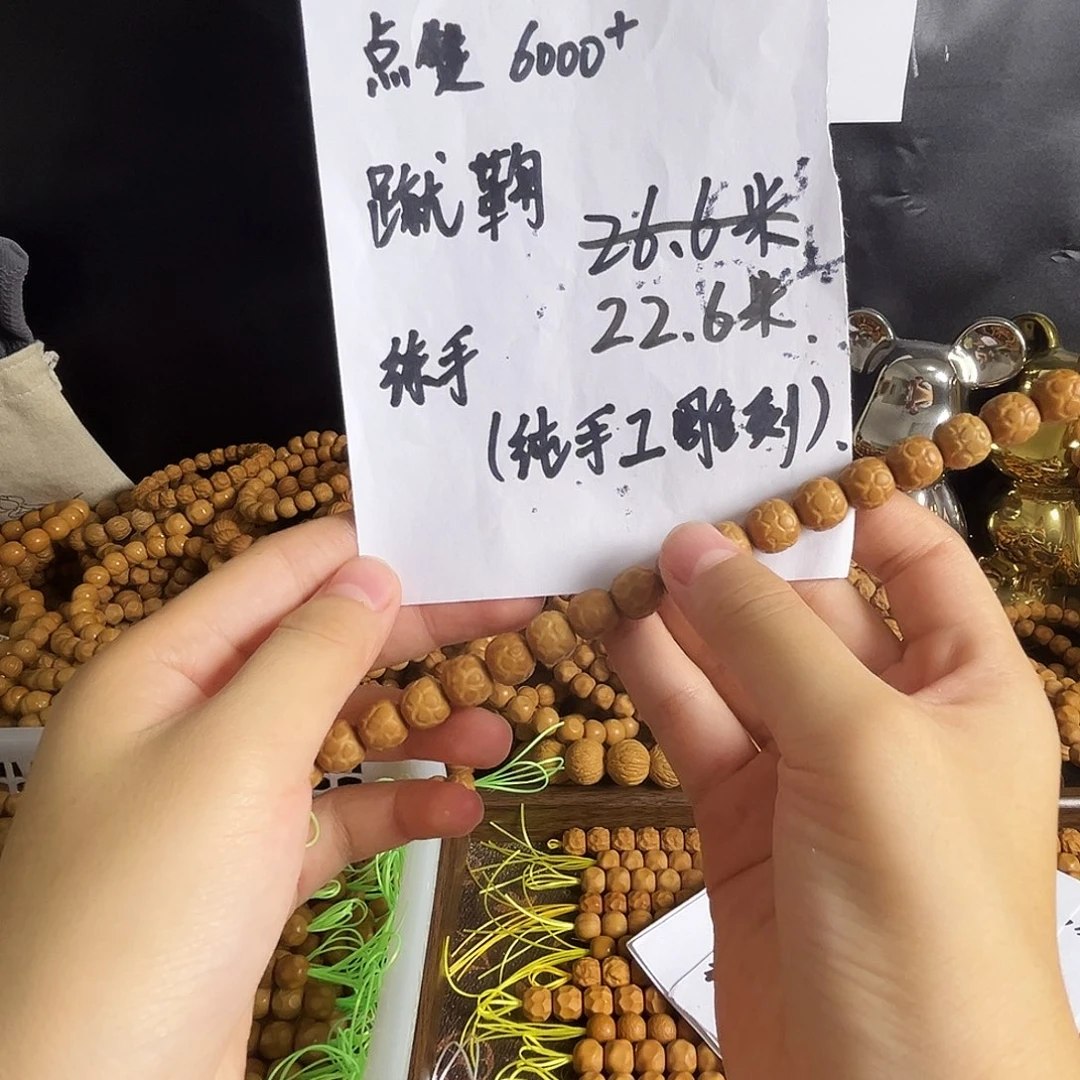 点赞 6000+
蹴鞠
26.6米
22.6米
练手
(纯手工雕刻)